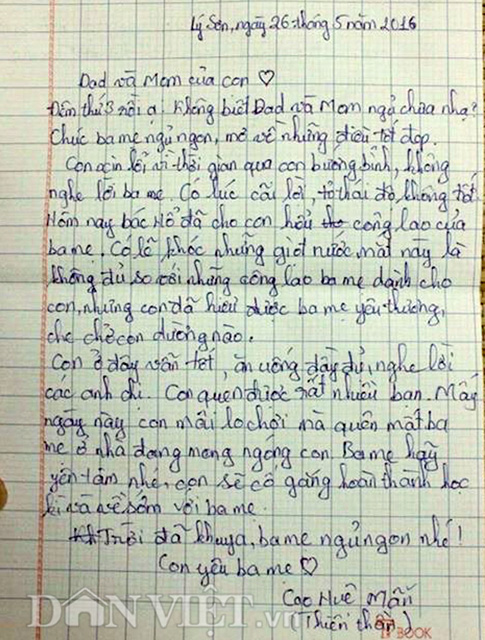 Lý Sơn, ngày 26 tháng 5 năm 2016
Dad và Mom của con ♡
Đêm thứ 3 rồi ạ. Không biết Dad và Mom ngủ chưa nhạ?
Chúc ba mẹ ngủ ngon, mơ về những điều tốt đẹp.
Con xin lỗi vì thời gian qua con bướng bỉnh, không
nghe lời ba mẹ. Có lúc cãi lời, tỏ thái độ không tốt
Hôm nay bác Hổ đã cho con hiểu công lao của
ba mẹ. Có lẽ khóc những giọt nước mắt này là
không đủ so với những công lao ba mẹ dành cho
con, nhưng con đã hiểu được ba mẹ yêu thương,
che chở con dường nào.
Con ở đây vẫn tốt, ăn uống đầy đủ, nghe lời
các anh chị. Con quen được rất nhiều bạn. Mấy
ngày này con mãi lo chơi mà quên mất ba
mẹ ở nhà đang mong ngóng con. Ba mẹ hãy
yên tâm nhé, con sẽ cố gắng hoàn thành học
kì và về sớm với ba mẹ.
Trời đã khuya, ba mẹ ngủ ngon nhé!
Con yêu ba mẹ ♡
Cao Huê Mẫn
(Thiên thần)
BOOK
DÂN VIỆT.vn